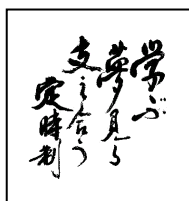 学ぶ
夢見る
支え合う
定時制